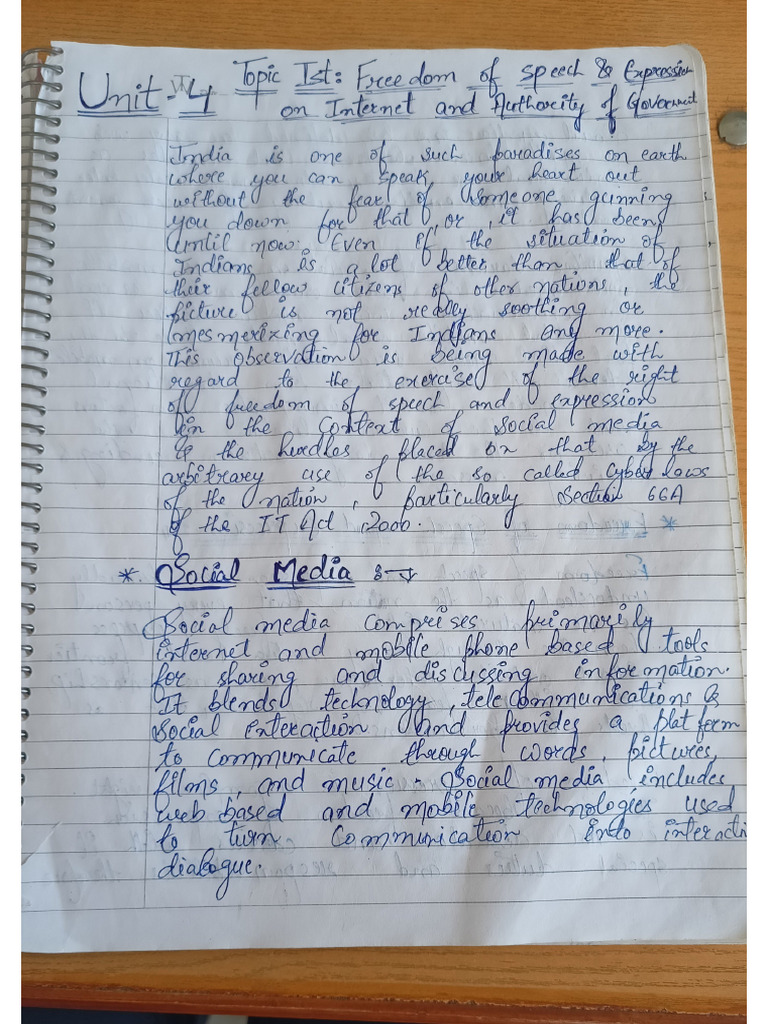 Unit-4 Topic Ist: Freedom of speech & Expression
on Internet and Authority of Government
India is one of such paradises on earth
where you can speak your heart out
without the fear of someone gunning
you down for that, or, it has been
until now. Even if the situation of
Indians is a lot better than that of
their fellow citizens of other nations, the
picture is not really soothing or
mesmerixing for Indians any more.
This observation is being made with
regard to the exercise of the right
of freedom of speech and expression
in the context of social media
& the hurdles placed on that by the
arbitrary use of the so called cyber laws
of the nation, particularly Section 66A
of the IT Act, 2000.
*. Social Media :-
Social media comprises primarily
internet and mobile phone based tools
for sharing and discussing information.
It blends technology, telecommunications &
social interaction and provides a platform
to communicate through words, pictures,
films, and music. Social media includes
web based and mobile technologies used
to turn communication into interacti
dialogue.